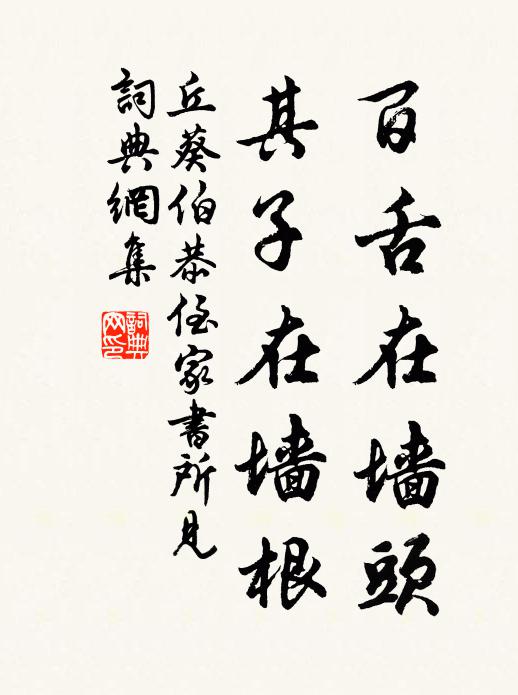 百舌在墙頭
其子在墙根
丘葵伯恭侄家書所見
詞典網集
詞典网印